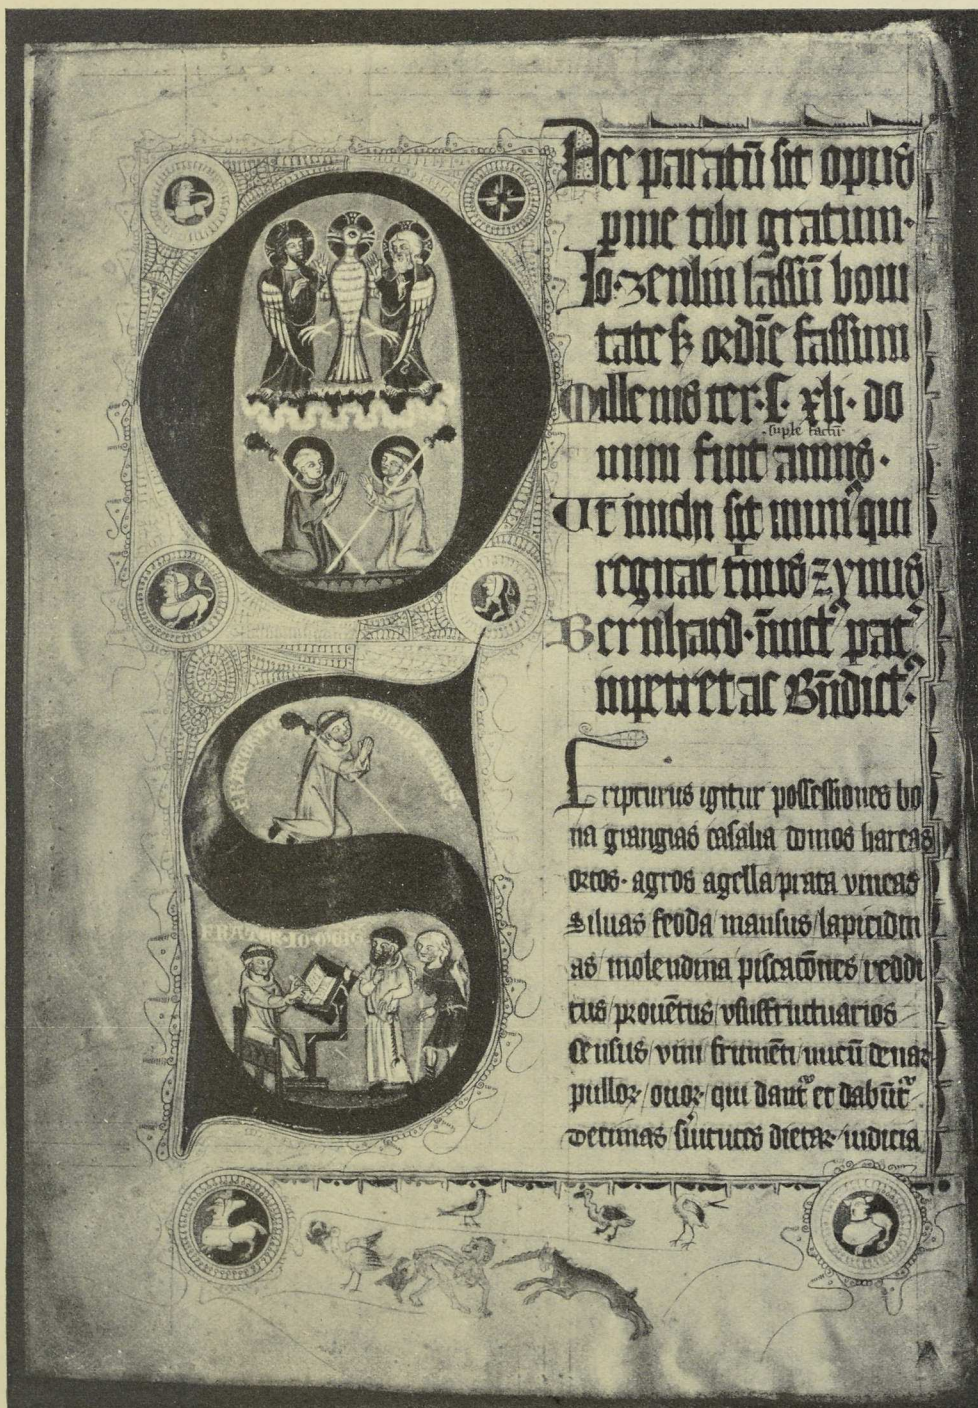 Dec paratū sit opus
pme tibi gratum·
Jo·zenlin lassū boni
tate ẜ ordīe fassum
Millenis ter·C· xli· do
suple factū
mini sunt annis·
Ut michi sit
regnat zymus
Bernhard· pat᷒
impetret ac Bn̄dict᷒·
Scripturus igitur possessiones bo
na grangias casalia domos hareas
ortos· agros agella/prata vineas
Siluas feoda/mansus/lapicidin
as/molendina piscatōnes/reddi
tus/prouētus/vsuffructuarios
Census/vini frumēti/nucū denar
pullor/ouor/qui dant᷑ et dabūt᷑
Decimas dietar/iudicia
FRATER